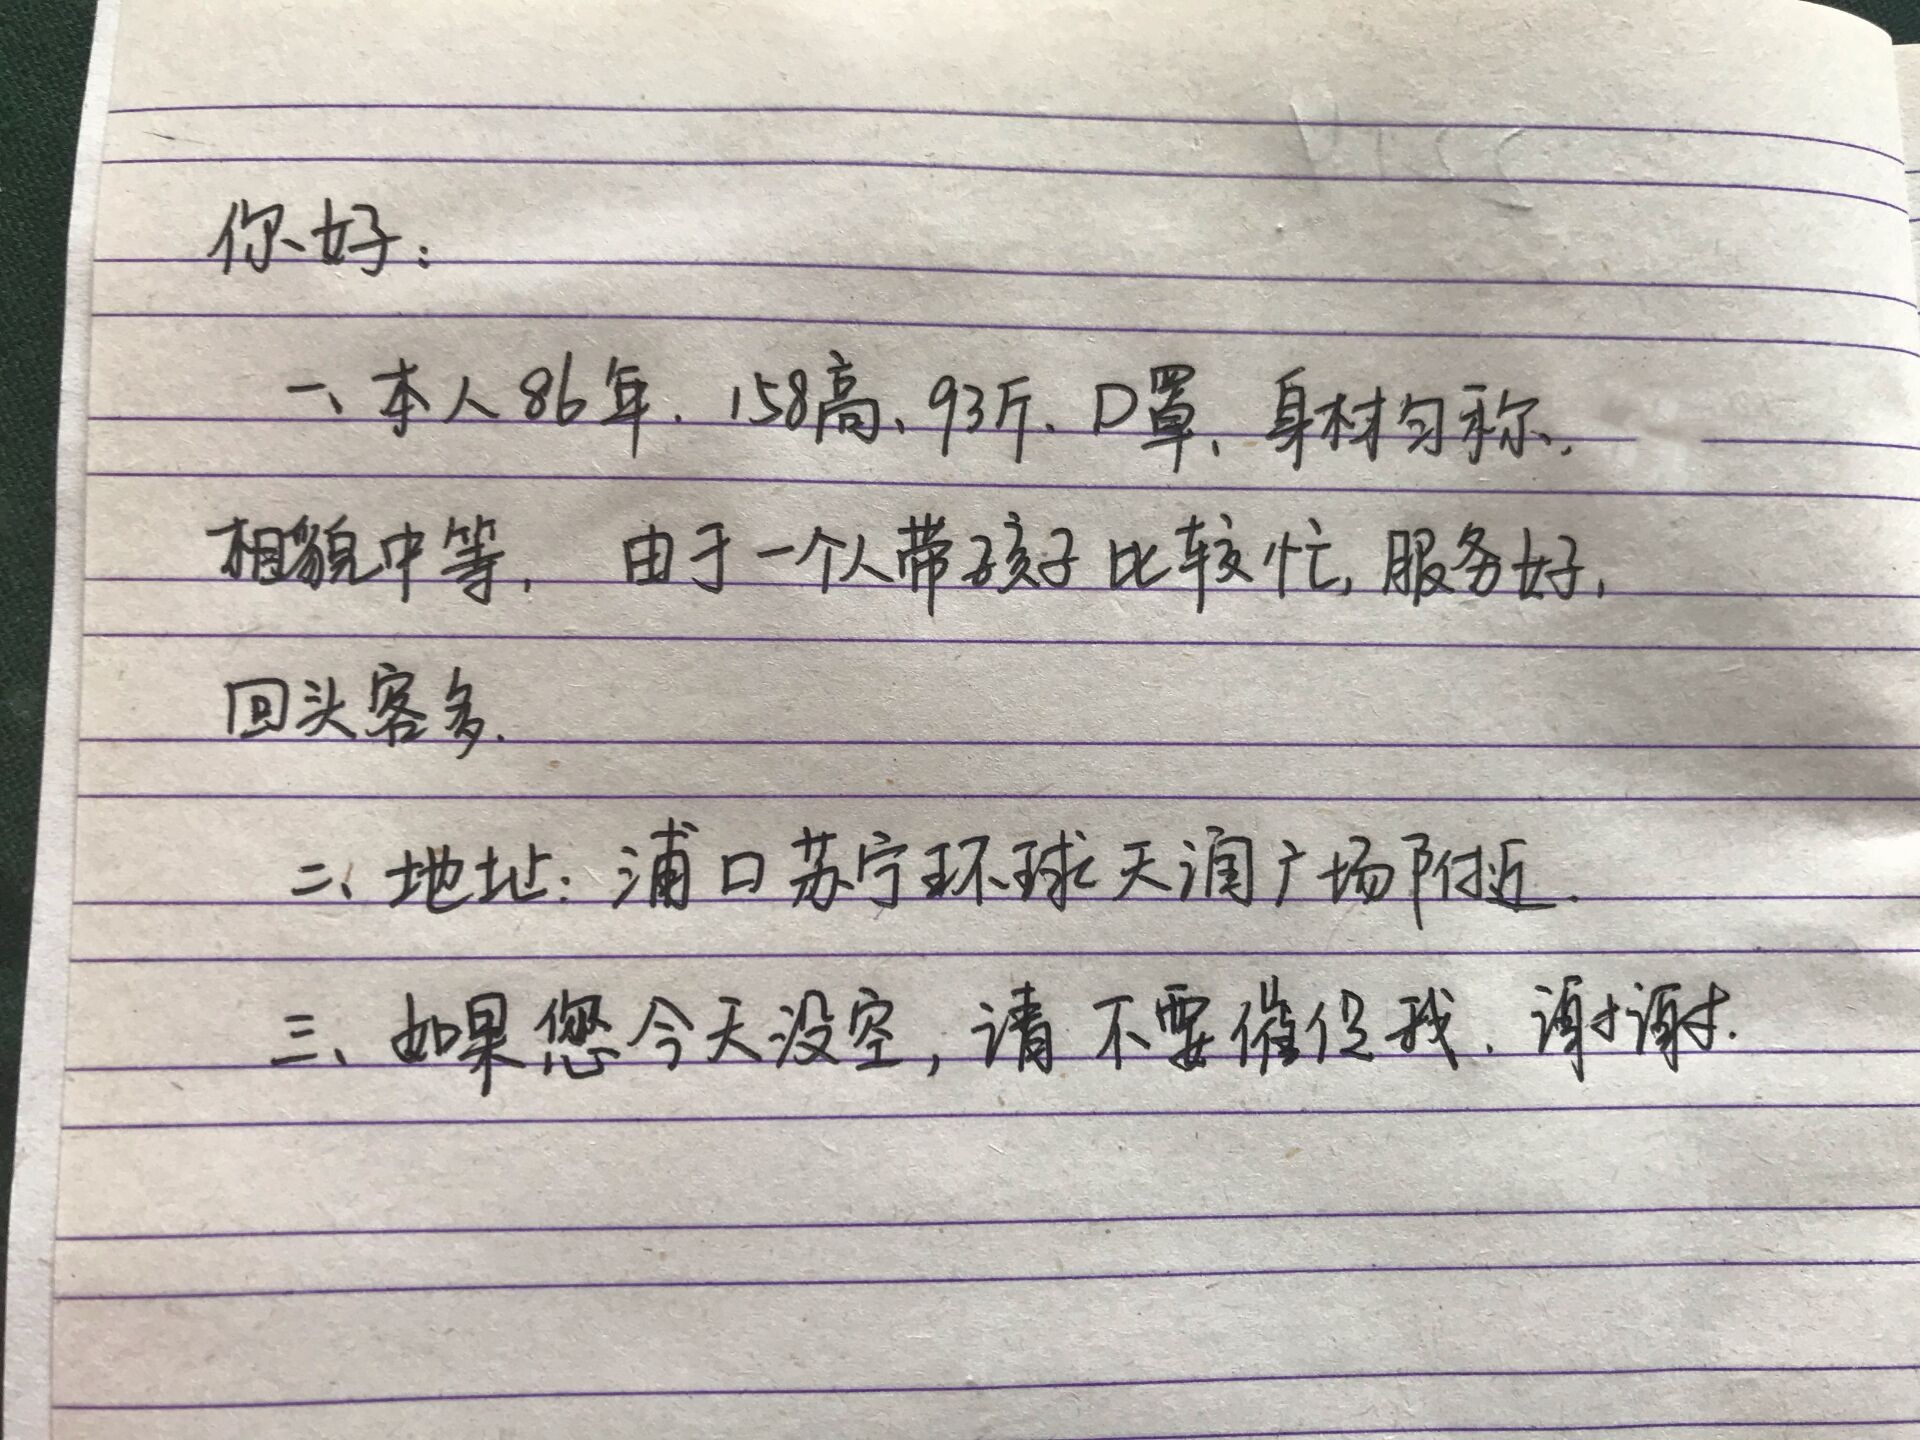 你好:
一、本人86年.158高、93斤、D罩、身材匀称、
相貌中等, 由于一个人带孩子比较忙,服务好,
回头客多.
二、地址:浦口苏宁环球天润广场附近.
三、如果您今天没空,请不要催促我.谢谢.